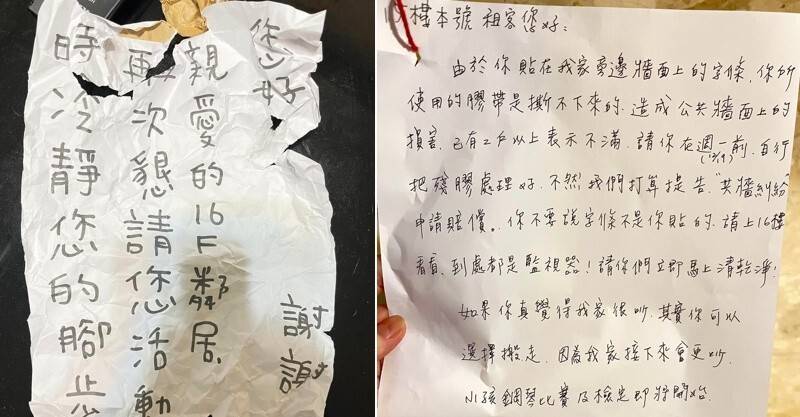 您好
親愛的16F鄰居
再次懇請您活動
時冷靜您的腳步
謝謝
樓本號 租客您好:
由於你貼在我家旁邊牆面上的字條, 你所
使用的膠帶是撕不下來的. 造成公共牆面上的
損害, 已有2戶以上表示不滿, 請你在週一前, 自行
把殘膠處理好, 不然我們打算提告"共牆糾紛"
申請賠償。你不要說字條不是你貼的. 請上16樓
看看, 到處都是監視器!請你們立即馬上清乾淨!
如果你真覺得我家很吵, 其實你可以
選擇搬走, 因為我家接下來會更吵.
小孩鋼琴比賽及檢定即將開始.